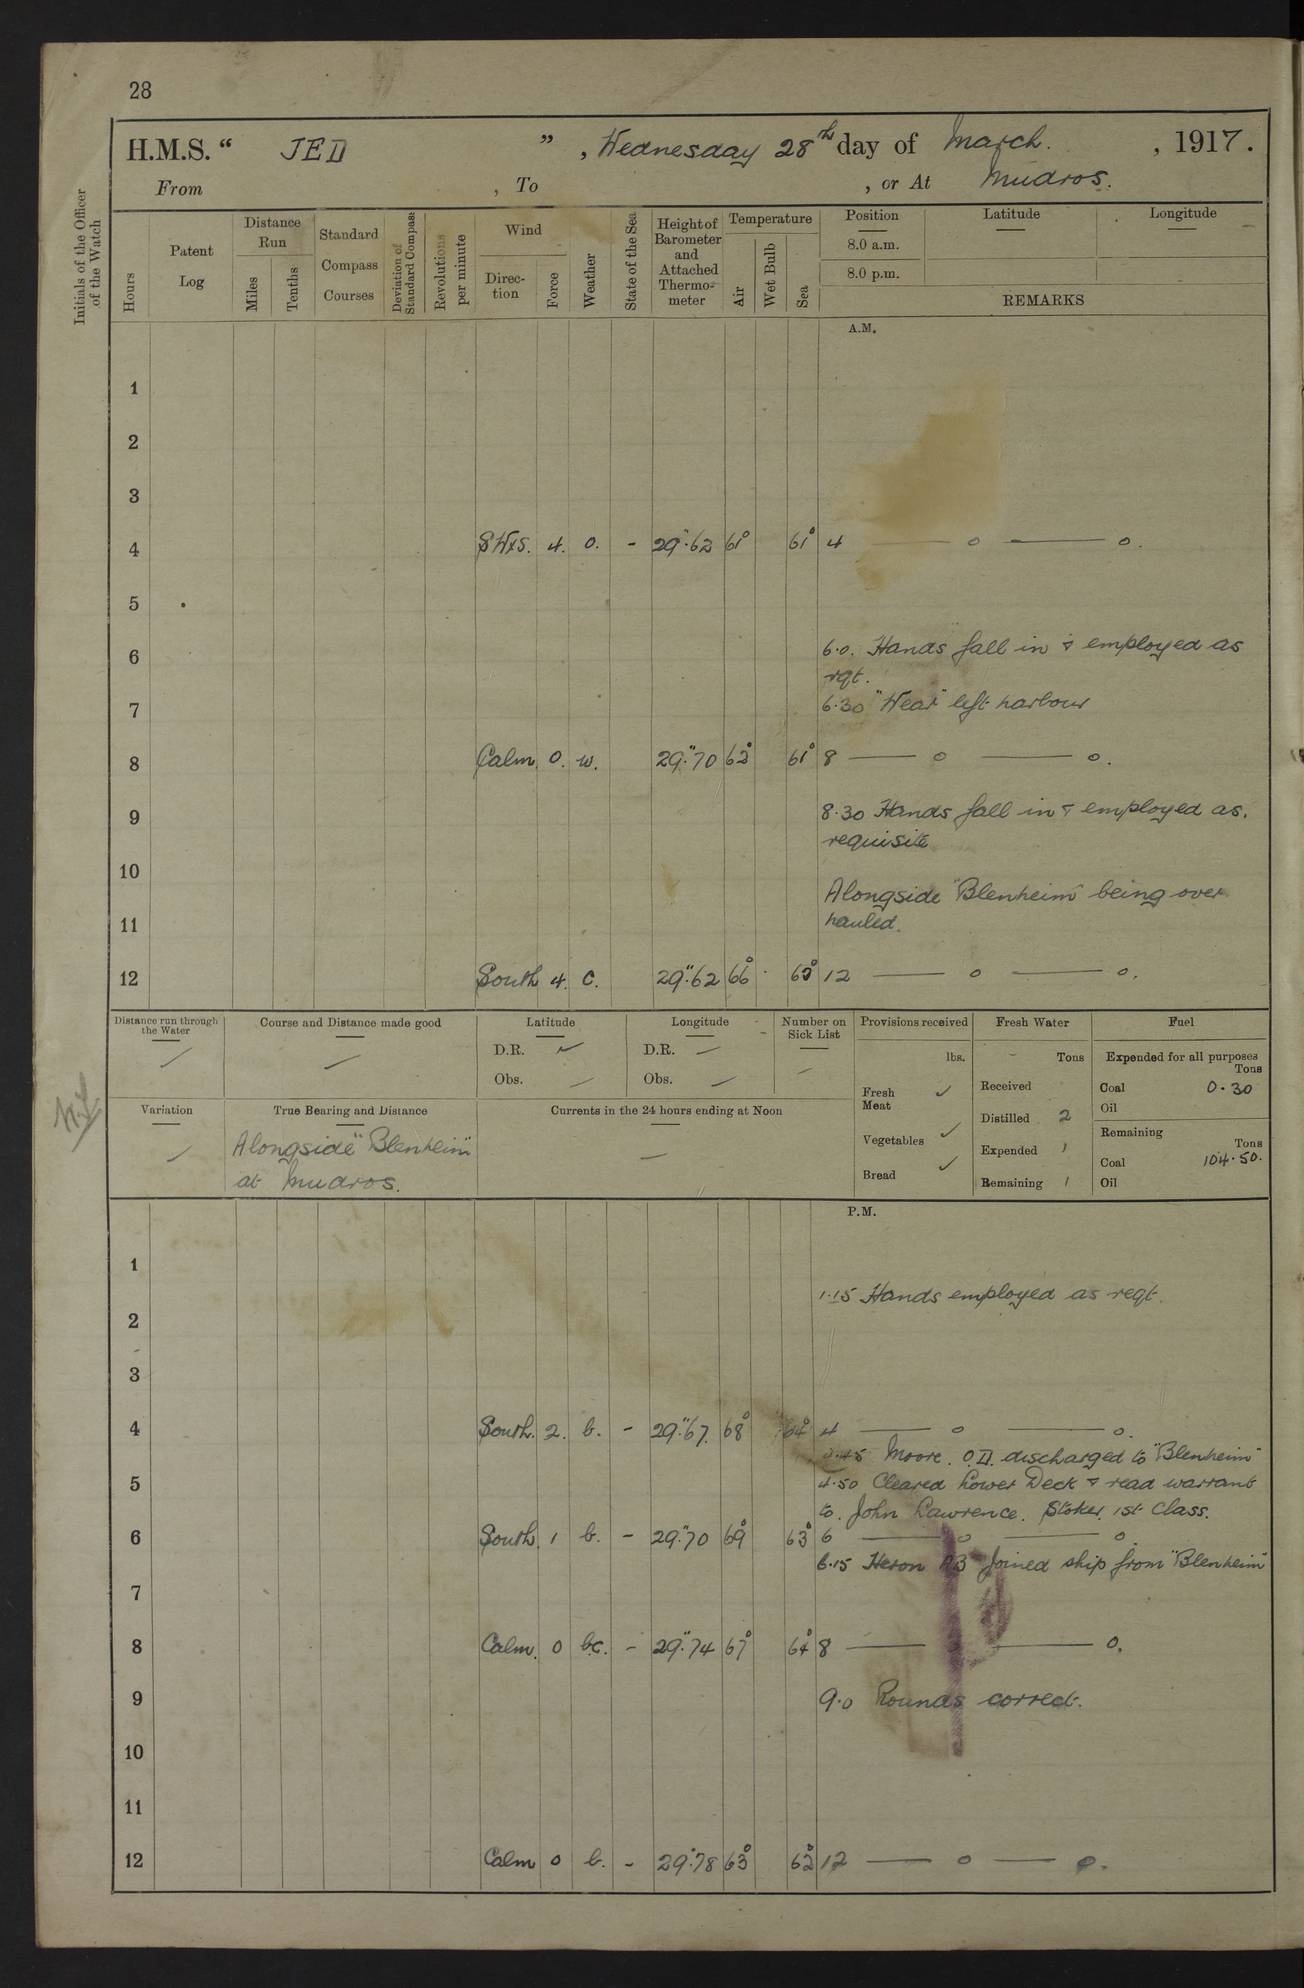 28
H.M.S. “ JED ” , Wednesday 28th day of March. , 1917.
From , To , or At Mudros.
Initials of the Officer of the Watch
Hours
Patent Log
Distance Run
Miles
Tenths
Standard Compass Courses
Deviation of Standard Compass
Revolutions per minute
Wind
Direc-tion
Force
Weather
State of the Sea
Height of Barometer and Attached Thermo-meter
Temperature
Air
Wet Bulb
Sea
Position Latitude Longitude
8.0 a.m.
8.0 p.m.
REMARKS
A.M.
1
2
3
4 SWxS. 4. o. - 29".62 61° 61° 4 — o — o.
5
6 6.0. Hands fall in & employed as
rqt.
7 6.30 "Wear" left harbour
8 Calm. 0. w. 29".70 62° 61° 8 — o — o.
9 8.30 Hands fall in & employed as.
requisite
10
Alongside "Blenheim" being over
11 hauled.
12 South 4. c. 29".62 66° 12 — o — o.
Distance run through the Water
Course and Distance made good
Latitude
D.R.
Obs.
Longitude
D.R. —
Obs. —
Number on Sick List
Provisions received
lbs.
Fresh Meat ✓
Vegetables ✓
Bread ✓
Fresh Water
Tons
Received
Distilled 2
Expended 1
Remaining 1
Fuel
Expended for all purposes
Tons
Coal 0.30
Oil
Remaining
Tons
Coal 104.50.
Oil
Variation
True Bearing and Distance
Alongside "Blenheim"
at Mudros.
Currents in the 24 hours ending at Noon
—
P.M.
1
1.15 Hands employed as reqt.
2
3
4 South. 2. b. - 29".67. 68° 64° 4 — o — o.
Moore. O.D. discharged to "Blenheim"
5 4.50 Cleared Lower Deck & read warrant
to. John Lawrence. Stoker. 1st Class.
6 South. 1 b. - 29".70 69° 63° 6 — o — o.
6.15 Heron AB Joined ship from "Blenheim"
7
8 Calm. 0 bc. - 29".74 67° 64° 8 — — o.
9 9.0 Rounds correct.
10
11
12 Calm 0 b. - 29".78 63° 62° 12 — o — o.